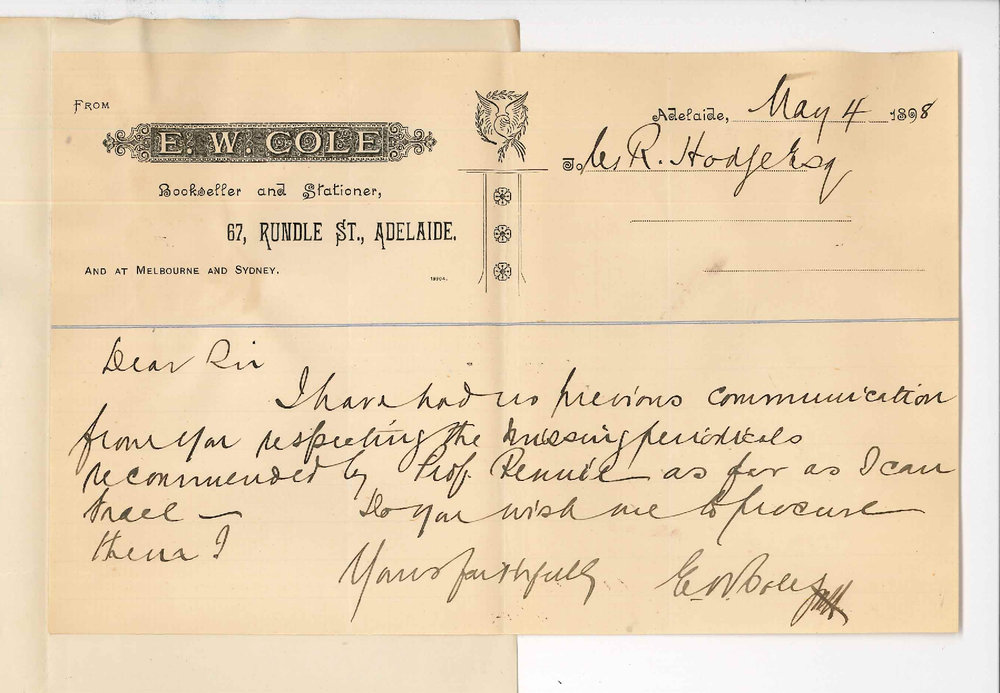 FROM
E. W. COLE
Bookseller and Stationer,
67, RUNDLE ST., ADELAIDE.
AND AT MELBOURNE AND SYDNEY.
Adelaide, May 4 1898
To R. Hodge Esq
Dear Sir
I have had no previous communication
from you respecting the missing periodicals
recommended by Prof. Rennie as far as I can
trace — Do you wish me to procure
them?
Yours faithfully E. W. Cole